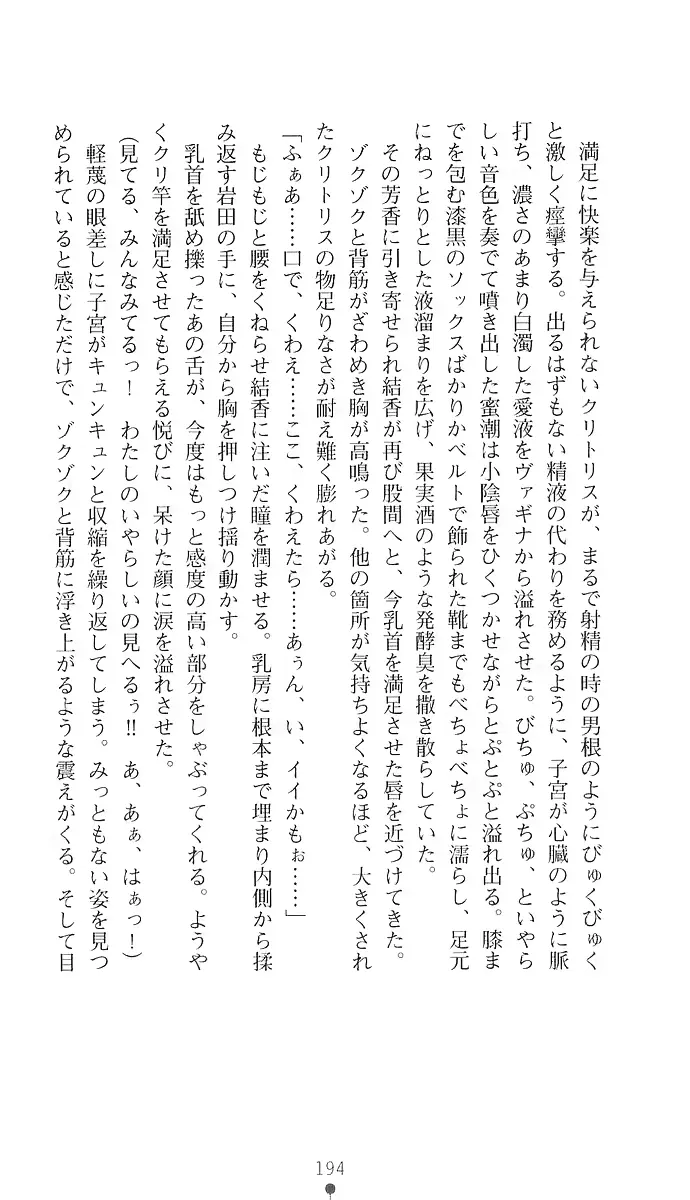 満足に快楽を与えられないクリトリスが、まるで射精の時の男根のようにびゅくびゅく
と激しく痙攣する。出るはずもない精液の代わりを務めるように、子宮が心臓のように脈
打ち、濃さのあまり白濁した愛液をヴァギナから溢れさせた。びちゅ、ぷちゅ、といやら
しい音色を奏でて噴き出した蜜潮は小陰唇をひくつかせながらとぷとぷと溢れ出る。膝ま
でを包む漆黒のソックスばかりかベルトで飾られた靴までもべちょべちょに濡らし、足元
にねっとりとした液溜まりを広げ、果実酒のような発酵臭を撒き散らしていた。
その芳香に引き寄せられ結香が再び股間へと、今乳首を満足させた唇を近づけてきた。
ゾクゾクと背筋がざわめき胸が高鳴った。他の箇所が気持ちよくなるほど、大きくされ
たクリトリスの物足りなさが耐え難く膨れあがる。
「ふぁあ……口で、くわえ……ここ、くわえたら……あぅん、い、イイかもぉ……」
もじもじと腰をくねらせ結香に注いだ瞳を潤ませる。乳房に根本まで埋まり内側から揉
み返す岩田の手に、自分から胸を押しつけ揺り動かす。
乳首を舐め擽ったあの舌が、今度はもっと感度の高い部分をしゃぶってくれる。ようや
くクリ竿を満足させてもらえる悦びに、呆けた顔に涙を溢れさせた。
(見てる、みんなみてるっ！　わたしのいやらしいの見へるぅ!!　あ、あぁ、はぁっ！)
軽蔑の眼差しに子宮がキュンキュンと収縮を繰り返してしまう。みっともない姿を見つ
められていると感じただけで、ゾクゾクと背筋に浮き上がるような震えがくる。そして目
194